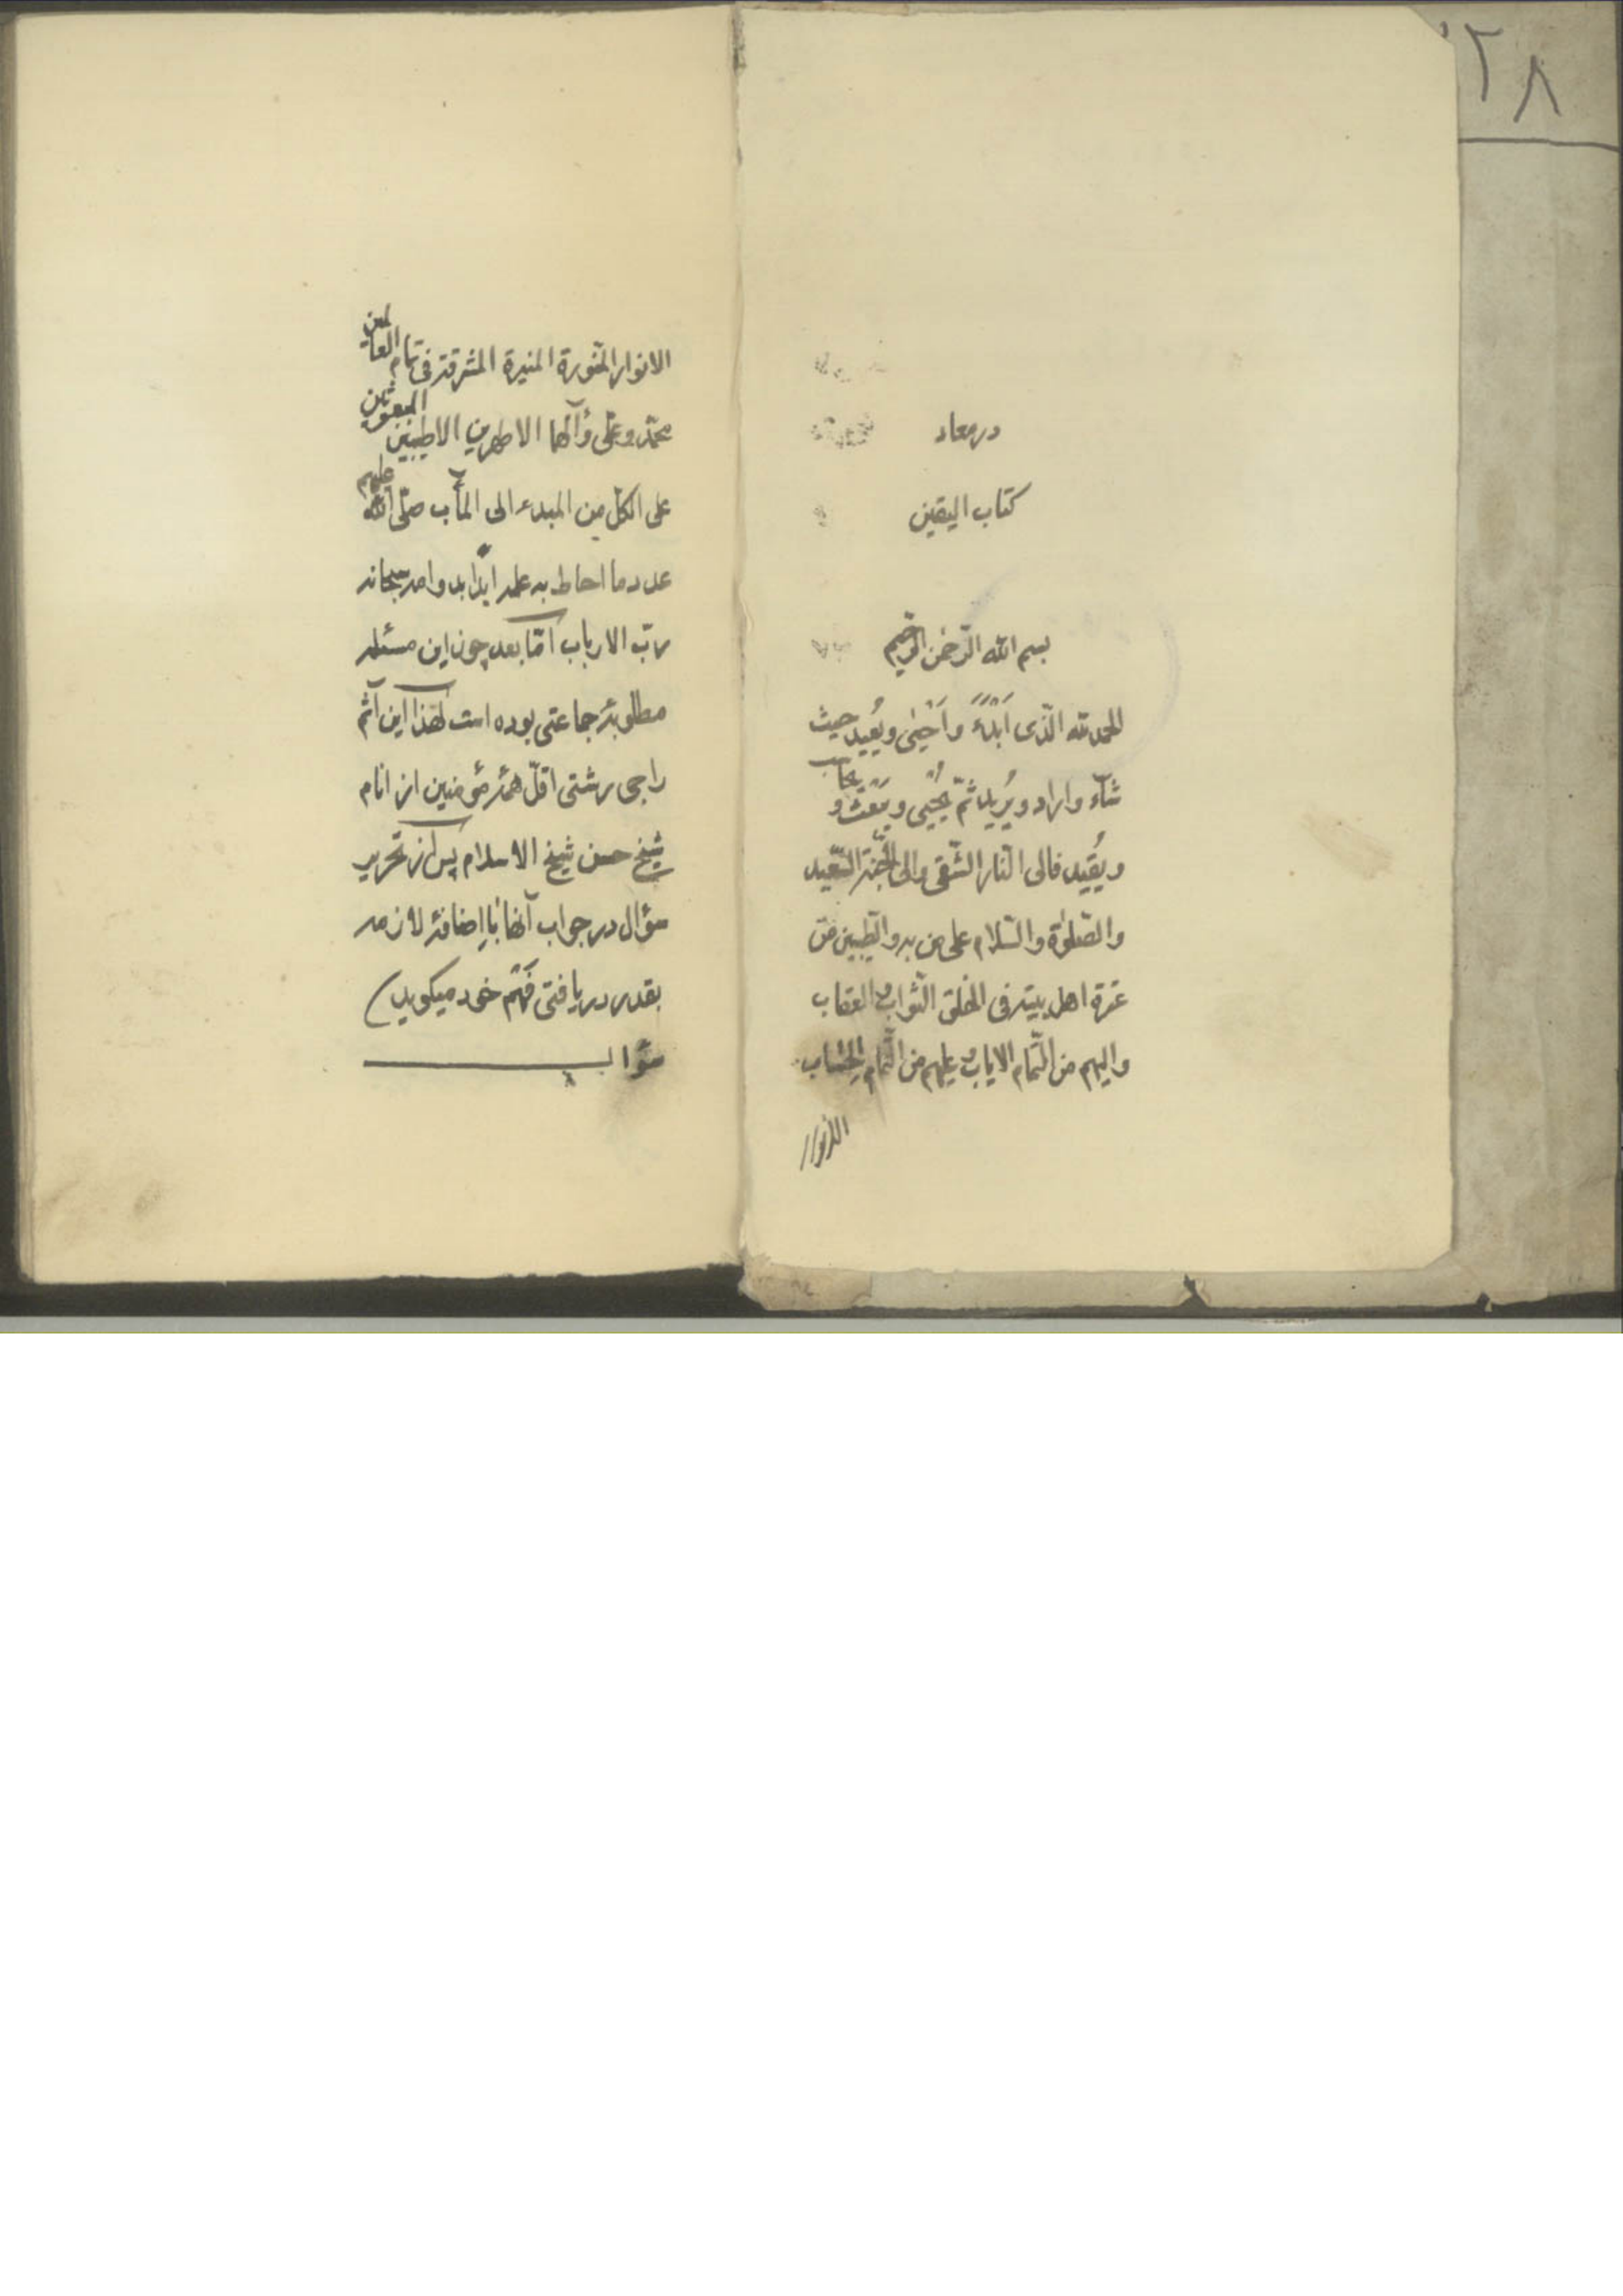 ٢٨
در معاد
كتاب اليقين
بسم الله الرّحمن الرّحيم
الحمد لله الّذى اَبْدَءَ واَحْيٰى ويُعيد حيث
شآء واراد ويُريد ثمّ يُحْيى ويَبْعَث و يحاسب
ويُقيد فالى النّار الشّقى والى الجنّة السّعيد
والصّلوٰة والسّلام على من به والطّيبين من
عترة اهل بيته فى الخلق الثّواب والعقاب
واليهم من التّمام الاياب وعليهم من التّمام الحساب
الانوار
الانوار المنّورة المنيرة المشرقة فى تمام العالمين
محمّد وعلى وآلهما الاطهرين الاطيبين المبعوثين
على الكلّ من المبدء الى المآب صلّى الله عليهم
عدد ما احاط به علم ابداً بدوامه سبحانه
ربّ الارباب امّا بعد چون اين مسئله
مطلوبهٔ جماعتى بوده است لهذا اين آثم
راجى رشتى اقلّ همهٔ مؤمنين از انام
شيخ حسن شيخ الاسلام پس از تحرير
سؤال در جواب آنها با اضافهٔ لازمه
بقدر دريافتى فَهْم خود ميكويد
سؤال